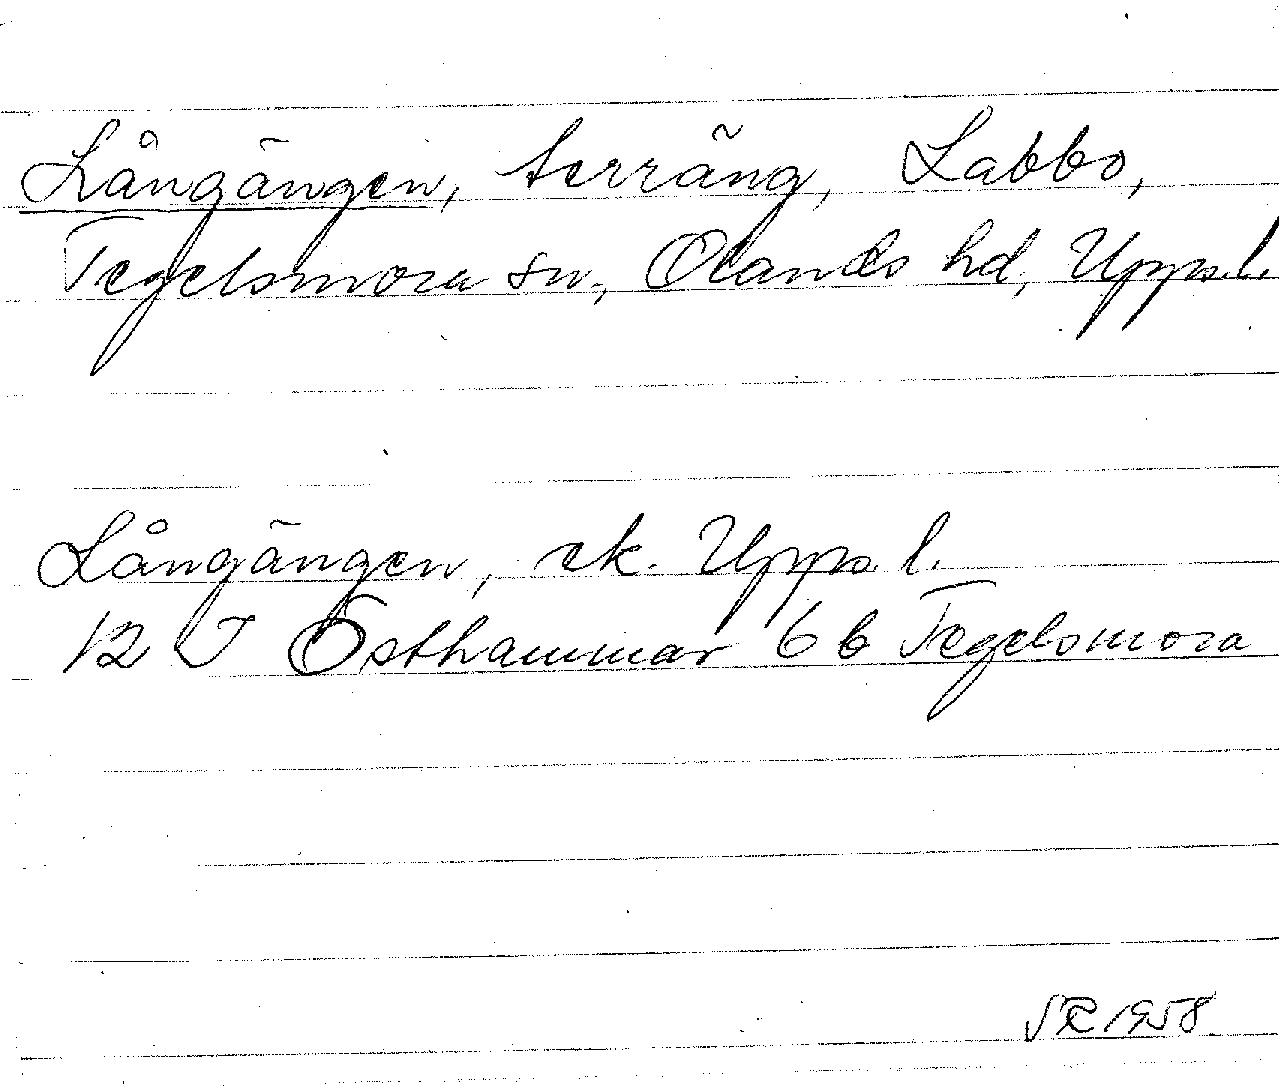 Långängen, terräng, Labbo,
Tegelsmora sn., Olands hd, Upps. l.
Långängen, ek. Upps. l.
12 I Östhammar 6 b Tegelsmora
1958